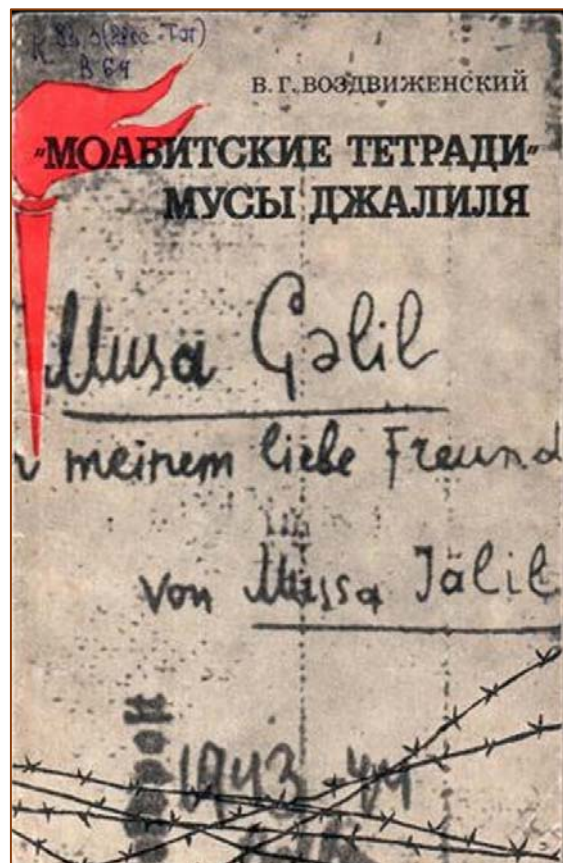 В 64
В. Г. ВОЗДВИЖЕНСКИЙ
„МОАБИТСКИЕ ТЕТРАДИ"
МУСЫ ДЖАЛИЛЯ
Musa Çəlil
meinem liebe Freund
von Mussa Jälil
1943-44